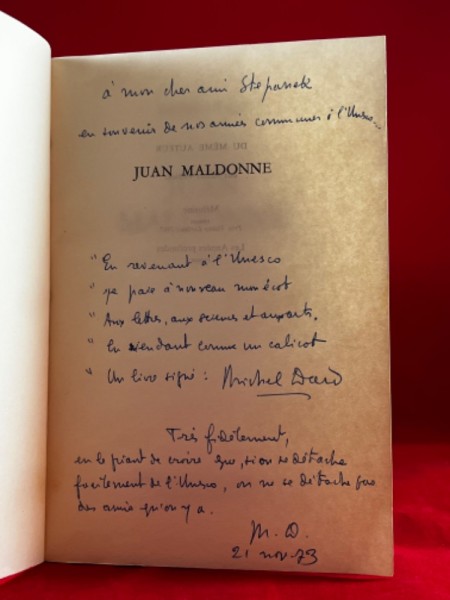 à mon cher ami Stepanek
en souvenir de nos années communes à l'Unesco...
DU MÊME AUTEUR
JUAN MALDONNE
Mélusine
"En revenant à l'Unesco
"je paie à nouveau mon écot
"Aux lettres, aux sciences et aux arts.
"En vendant comme un calicot
"Un livre signé : Michel Dard
Très fidèlement,
en le priant de croire que, si on se détache
facilement de l'Unesco, on ne se détache pas
des amis qu'on y a.
M. D.
21 nov. 73